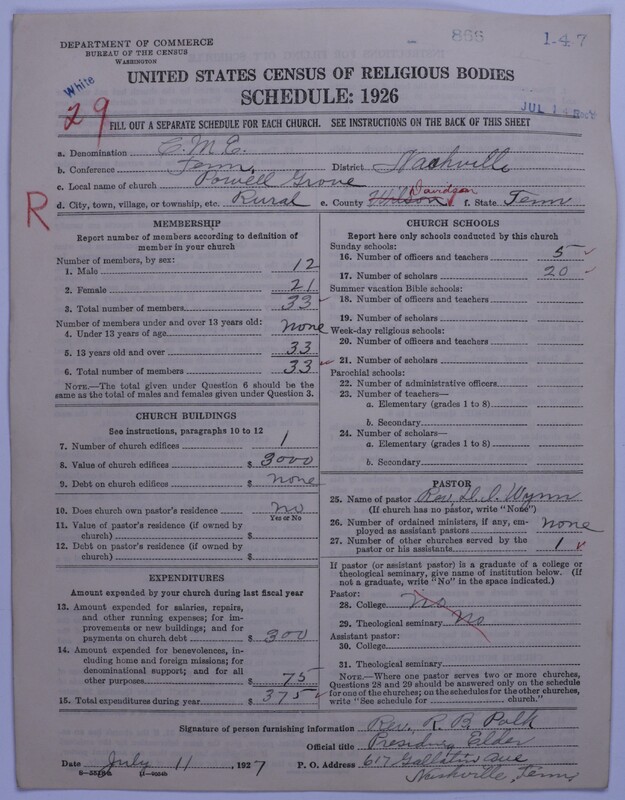 DEPARTMENT OF COMMERCE
BUREAU OF THE CENSUS
WASHINGTON
866
1-47
White
29
UNITED STATES CENSUS OF RELIGIOUS BODIES
SCHEDULE: 1926
JUL 1
FILL OUT A SEPARATE SCHEDULE FOR EACH CHURCH. SEE INSTRUCTIONS ON THE BACK OF THIS SHEET
a. Denomination C.M.E.
b. Conference Tenn. District Nashville
c. Local name of church Powell Grove
R
d. City, town, village, or township, etc. Rural e. County Wilson Davidson f. State Tenn
MEMBERSHIP
Report number of members according to definition of
member in your church
Number of members, by sex:
1. Male 12
2. Female 21
3. Total number of members 33
Number of members under and over 13 years old:
4. Under 13 years of age none
5. 13 years old and over 33
6. Total number of members 33
NOTE.—The total given under Question 6 should be
same as the total of males and females given under Question 3.
CHURCH BUILDINGS
See instructions, paragraphs 10 to 12
7. Number of church edifices 1
8. Value of church edifices $ 3000
9. Debt on church edifices $ none
10. Does church own pastor's residence no
Yes or No
11. Value of pastor's residence (if owned by
church) $
12. Debt on pastor's residence (if owned by
church) $
EXPENDITURES
Amount expended by your church during last fiscal year
13. Amount expended for salaries, repairs,
and other running expenses; for im-
provements or new buildings; and for
payments on church debt $ 300
14. Amount expended for benevolences, in-
cluding home and foreign missions; for
denominational support; and for all
other purposes $ 75
15. Total expenditures during year $ 375
CHURCH SCHOOLS
Report here only schools conducted by this church
Sunday schools:
16. Number of officers and teachers 5
17. Number of scholars 20
Summer vacation Bible schools:
18. Number of officers and teachers
19. Number of scholars
Week-day religious schools:
20. Number of officers and teachers
21. Number of scholars
Parochial schools:
22. Number of administrative officers
23. Number of teachers—
a. Elementary (grades 1 to 8)
b. Secondary
24. Number of scholars—
a. Elementary (grades 1 to 8)
b. Secondary
PASTOR
25. Name of pastor Rev. Wynn
(If church has no pastor, write "None")
26. Number of ordained ministers, if any, em-
ployed as assistant pastors none
27. Number of other churches served by the
pastor or his assistants 1
If pastor (or assistant pastor) is a graduate of a college or
theological seminary, give name of institution below. (If
not a graduate, write "No" in the space indicated.)
Pastor:
28. College no
29. Theological seminary no
Assistant pastor:
30. College
31. Theological seminary
NOTE.—Where one pastor serves two or more churches,
Questions 28 and 29 should be answered only on the schedule
for one of the churches; on the schedules for the other churches,
write "See schedule for church."
Signature of person furnishing information Rev. R. B. Polk
Official title Presiding Elder
Date July 11, 1927 P. O. Address 617 Gallatin Ave
Nashville, Tenn.